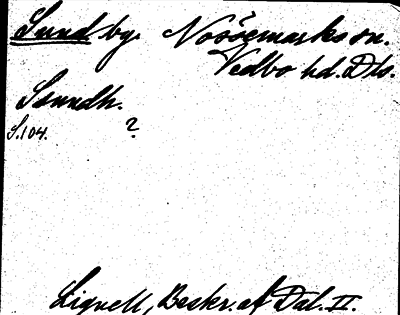 Sund by. Nössemarks sn.
Vedbo hd. Dls.
Ssundh.
S.104. ?
Lignell, Beskr. af Dal. II.